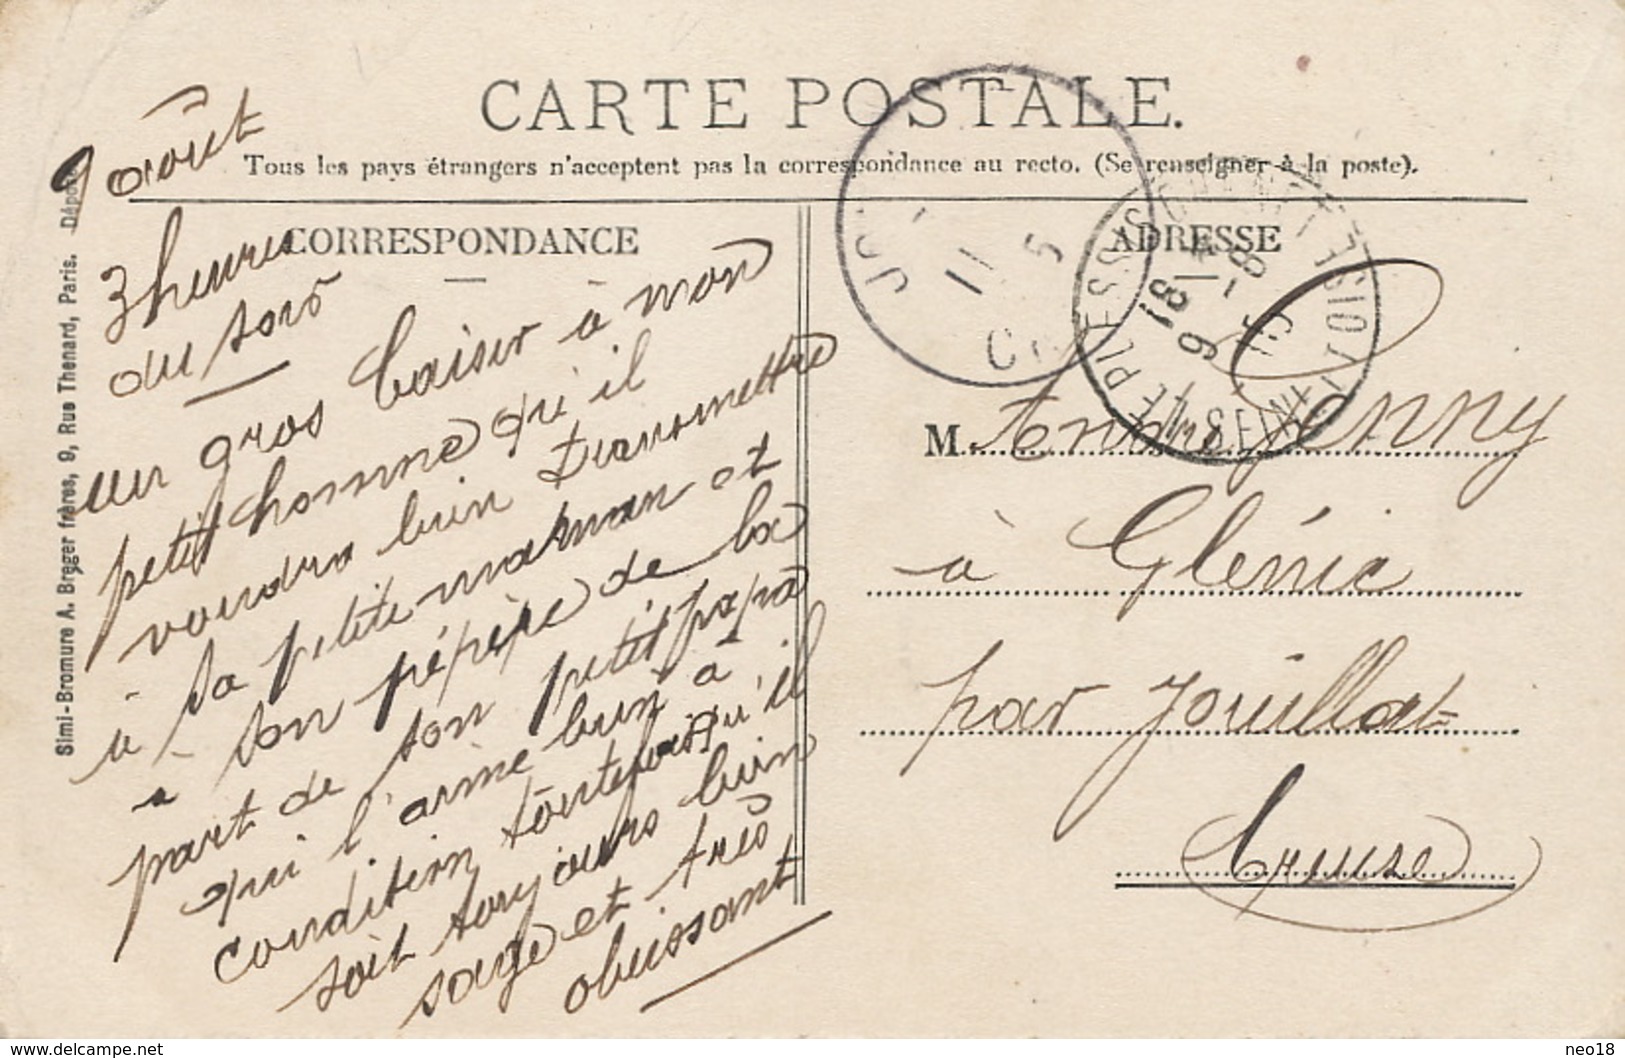 CARTE POSTALE.
Tous les pays étrangers n'acceptent pas la correspondance au recto. (Se renseigner à la poste).
CORRESPONDANCE
ADRESSE
9 août
3 heures
du soir
un gros baiser à mon
petit homme qu'il
voudra bien transmettre
à sa petite maman et
à son pépère de la
part de son petit papa
qui l'aime bien à
condition toutefois qu'il
soit toujours bien
sage et très
obeissant
M. Penny
à Glénic
par Jouillat
Creuse
LE PLESSIS
18
9 - 8
15
SEINE
11
5
Simi-Bromure A. Breger frères, 9, Rue Thenard, Paris.
delcampe.net
neo18